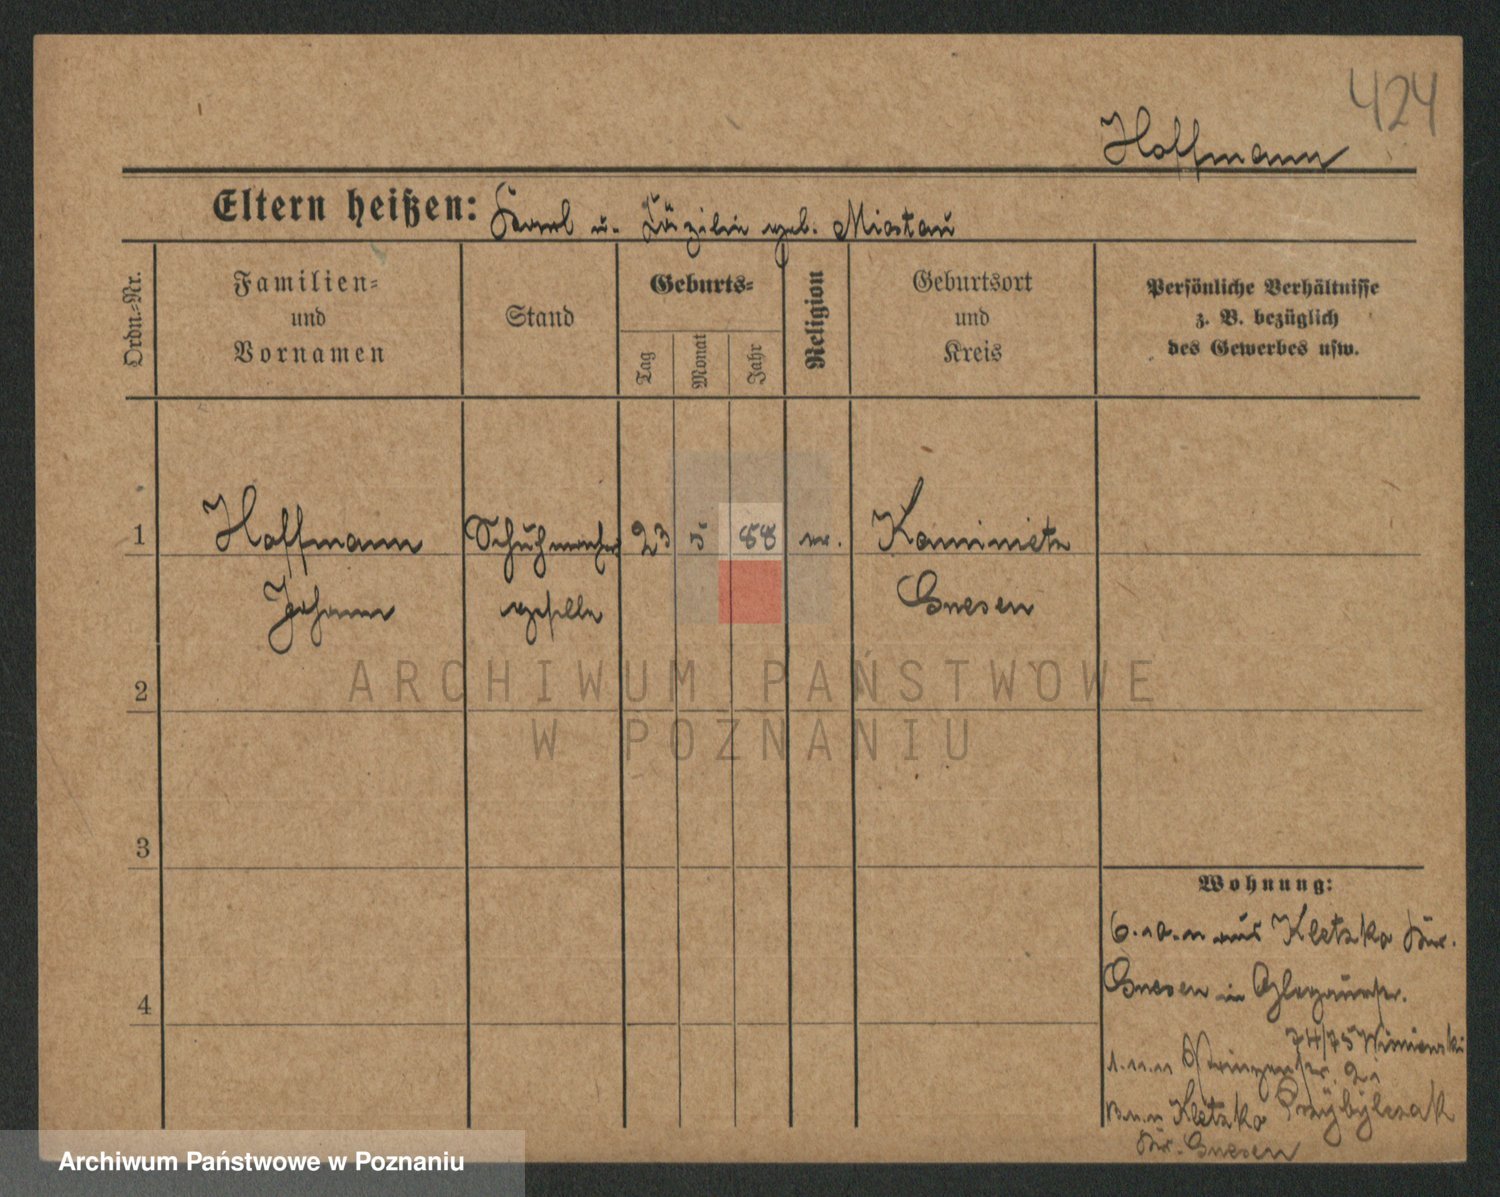 424
Hoffmann
Eltern heißen: Karl u. Zäzilie geb. Mistau
Ordn.-Nr.
Familien-
und
Vornamen
Stand
Geburts-
Tag
Monat
Jahr
Religion
Geburtsort
und
Kreis
Persönliche Verhältnisse
z. B. bezüglich
des Gewerbes usw.
1
Hoffmann
Johann
Schuhmacher
geselle
23
5
88
Kaminietz
Gnesen
2
3
4
ARCHIWUM PAŃSTWOWE
W POZNANIU
Wohnung:
aus Kletzko Kr.
Gnesen in Glogauerstr.
74/75
Kletzko Przybylczak
Kr. Gnesen
Archiwum Państwowe w Poznaniu